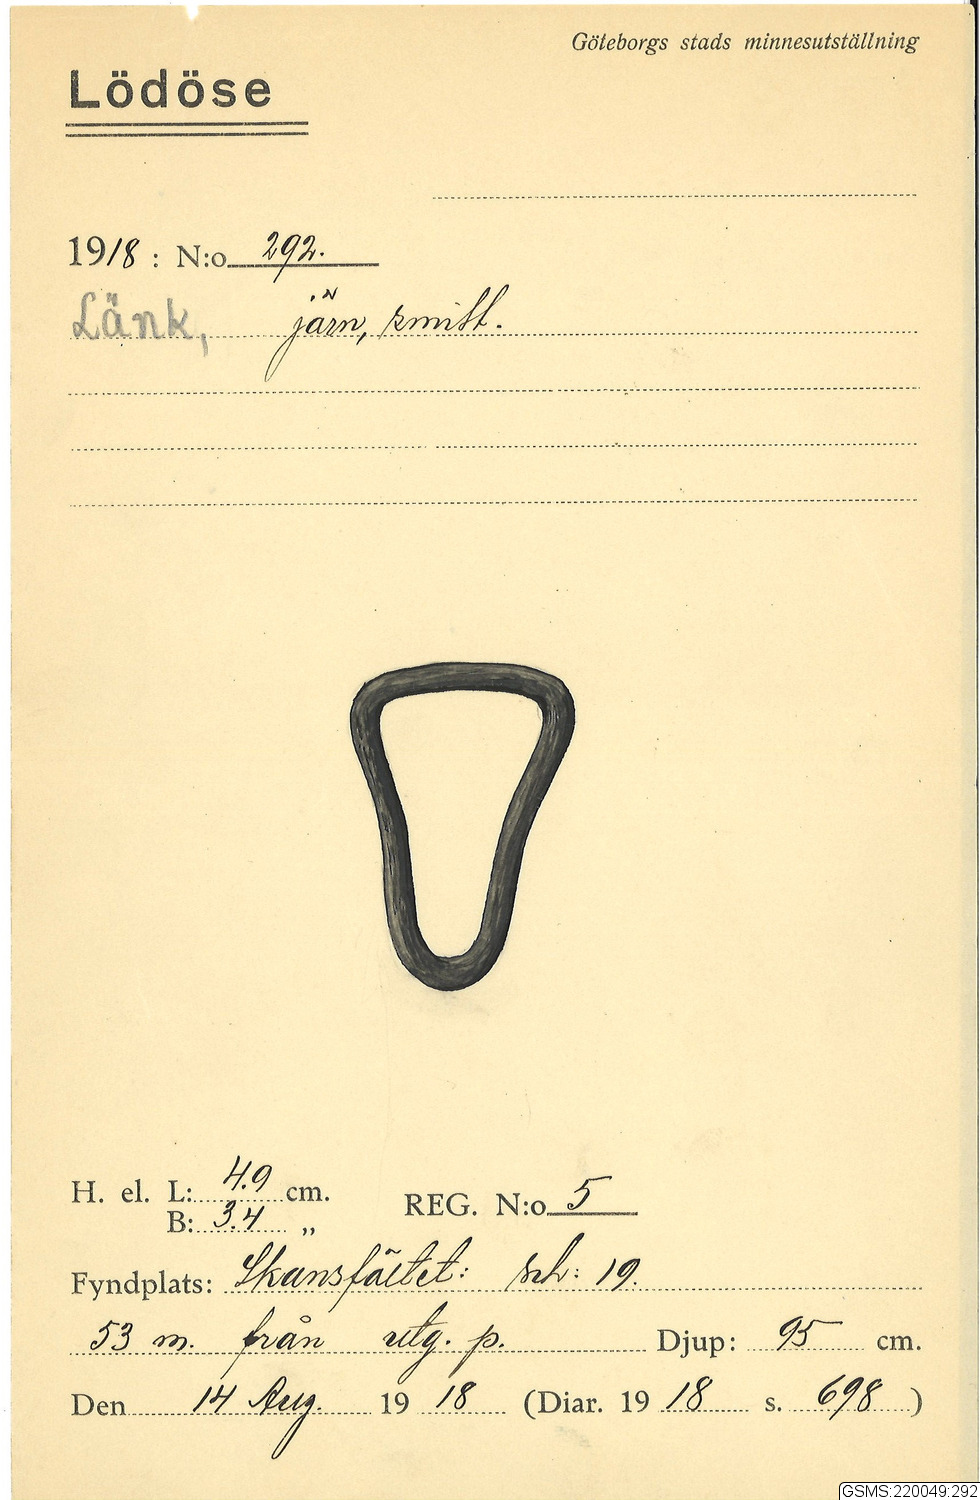 Göteborgs stads minnesutställning
Lödöse
1918: N:o 292.
Länk, järn, smitt.
H. el. L: 4.9 cm.
B: 3.4 „
REG. N:o 5
Fyndplats: Skansfältet: sch: 19.
53 m. från utg. p. Djup: 95 cm.
Den 14 Aug. 1918 (Diar. 1918 s. 698)
GSMS:220049:292